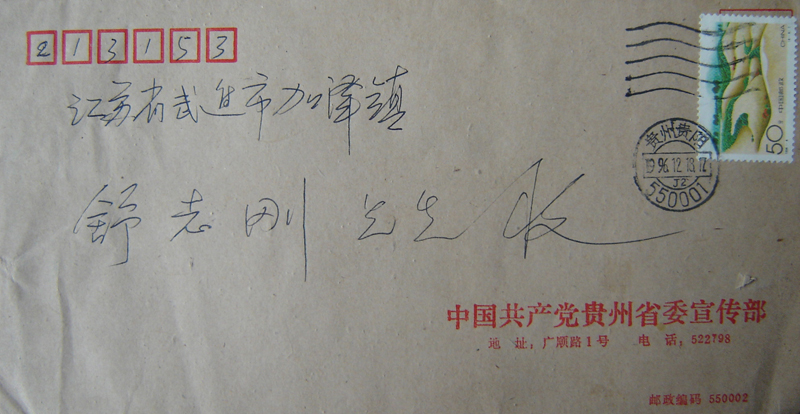 213153
江苏省武进市加泽镇
舒志刚先生收
中国邮政
CHINA
50分
贵州贵阳
1996.12.18.17
J2
550001
中国共产党贵州省委宣传部
地 址:广顺路1号 电 话:522798
邮政编码 550002